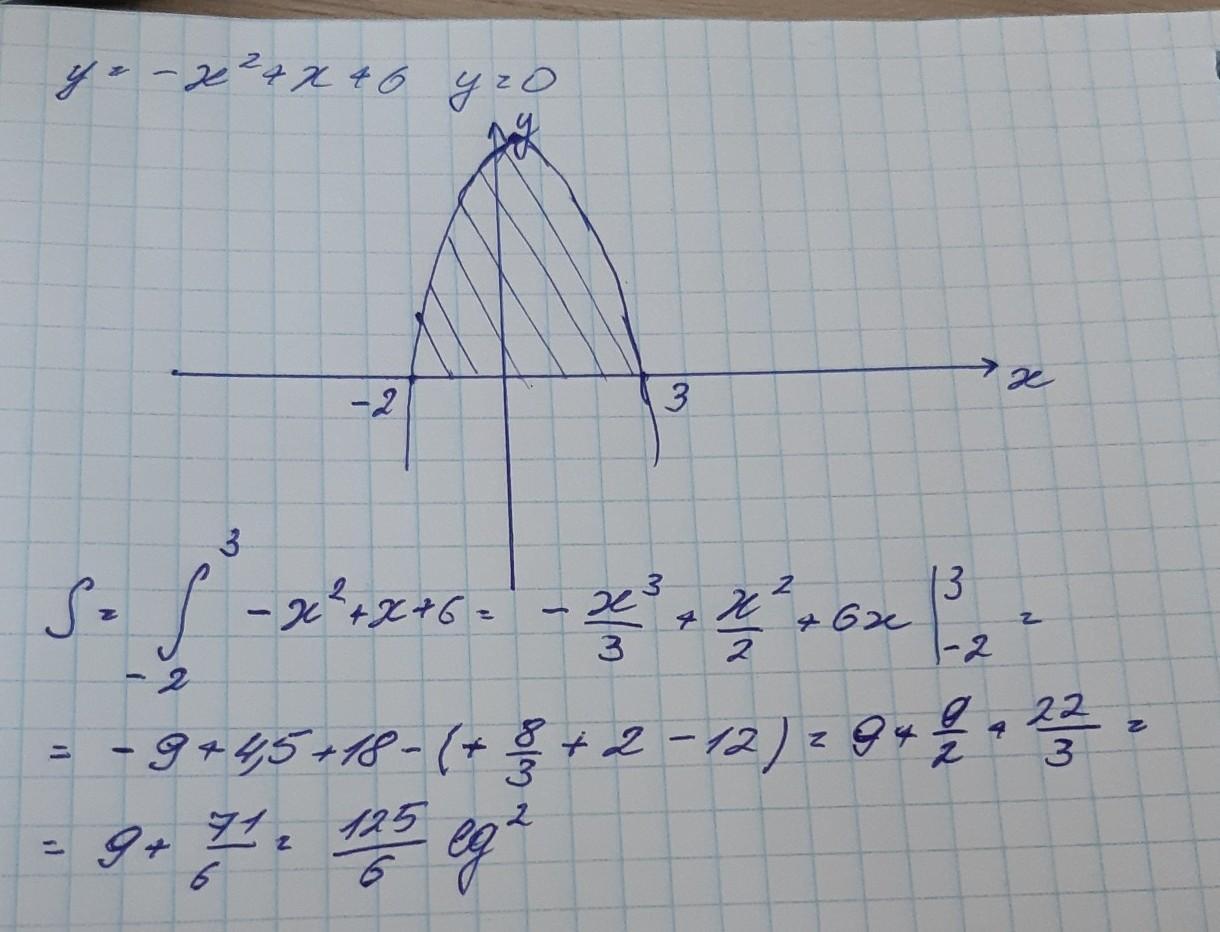 y = -x²+x+6 y=0
y
-2 3 x
S = ∫₋₂³ -x²+x+6 = -x³/3 + x²/2 + 6x |₋₂³ =
= -9+4,5+18-(+8/3+2-12) = 9+9/2+22/3 =
= 9+71/6 = 125/6 eg²